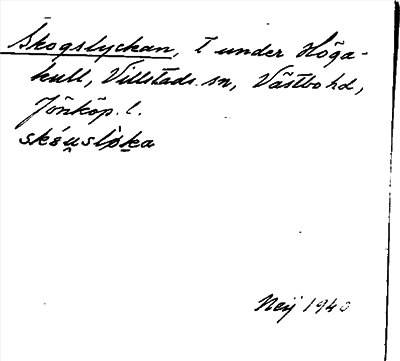 Skogslyckan, t under Höga-
kull, Villstads sn, Västbo hd,
Jönköp. l.
skéu̯slòka
Neij 1940